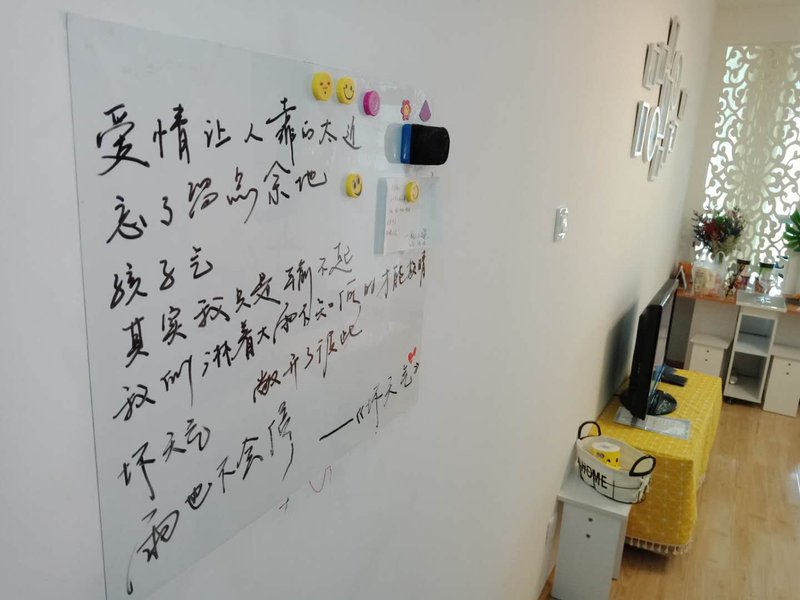 爱情让人靠的太近
忘了留点余地
孩子气
其实我只是输不起
我们淋着大雨不知何时才能放晴
坏天气 敞开了彼此
雨也不会停 ——《坏天气》
HOME